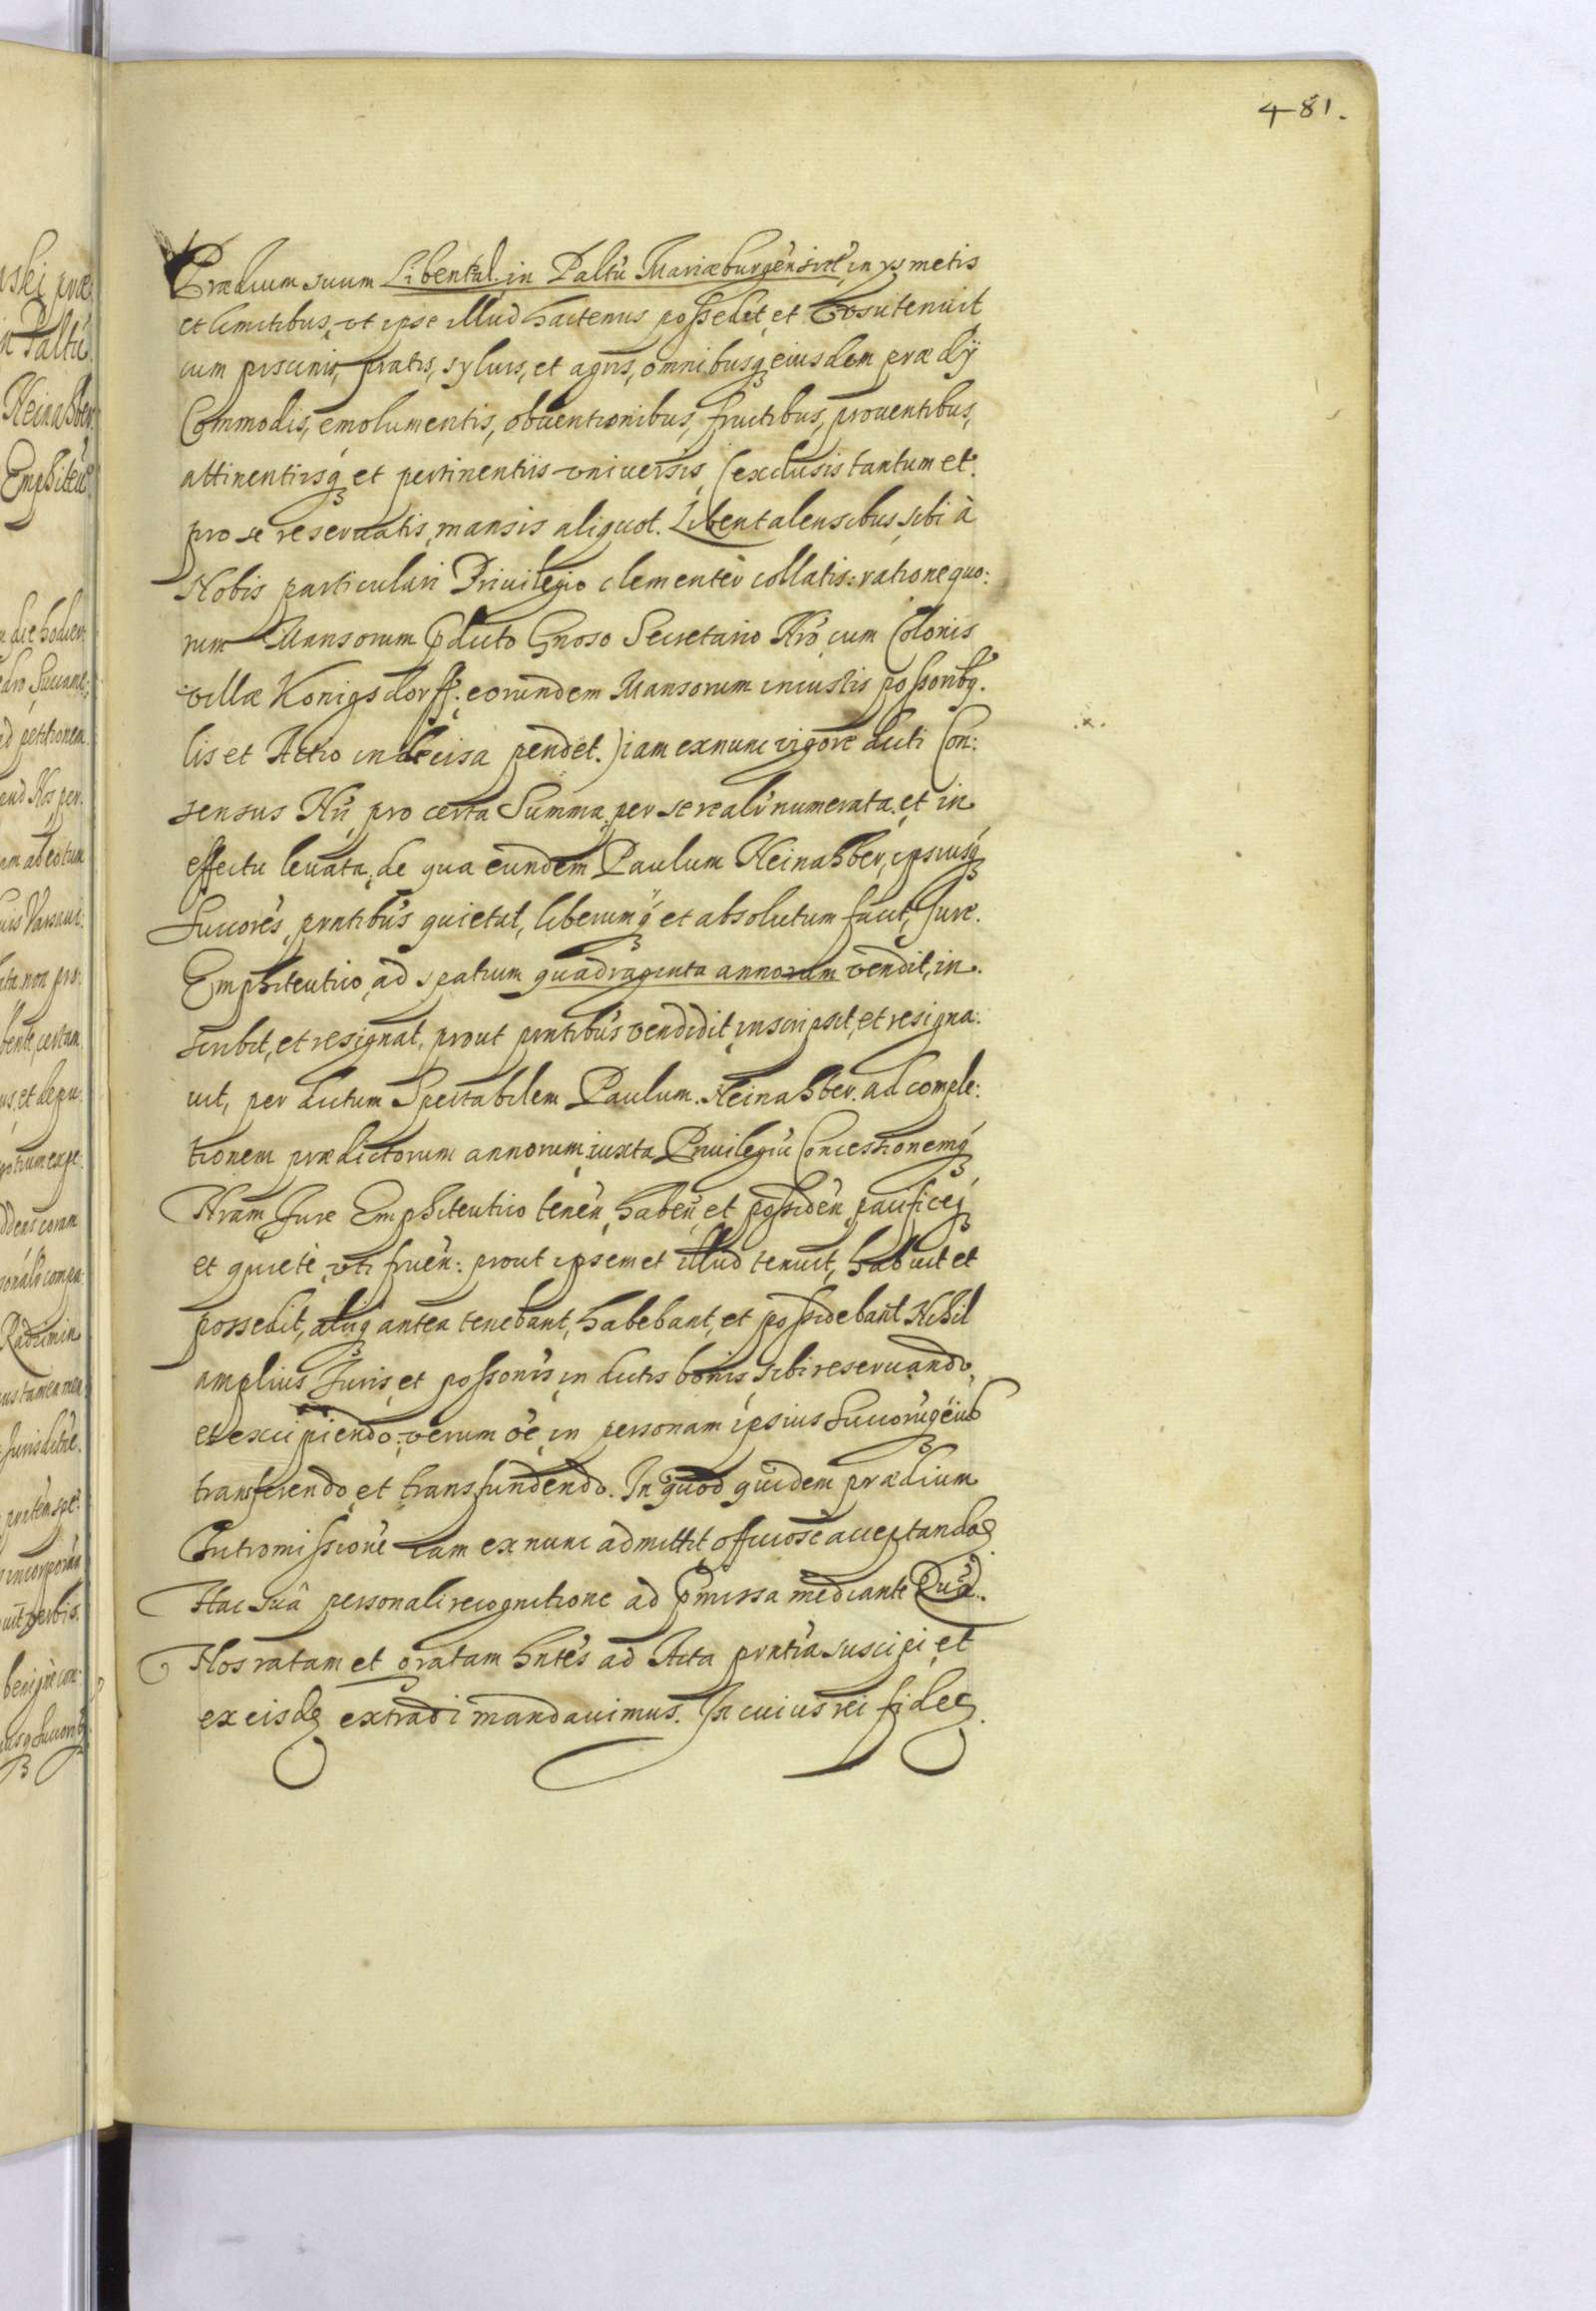 481.
Prædium suum Libental. in Paltũ Mariæburgẽnsi in ijs metis
et limitibus, vt ipse illud hactenus possedit et vsu tenuit
cum piscinis, pratis, syluis, et agris, omnibusq eiusdem prædij
Commodis, emolumentis, obuentionibus, fructibus, prouentibus,
attinentijsq et pertinentiis vniuersis, (exclusis tantum et
pro se reseruatis, mansis aliquot Libentalensibus, sibi à
Nobis particulari Priuilegio clementèr collatis: ratione quo:
rum Mansorum Pdicto Gnoso Secretario Nrõ, cum Colonis
villæ Konigsdorff. eorundem Mansorum iniustis possoribq.
lis et Actio indecisa pendet.) iam exnunc vigore dicti Con:
sensus Nri, pro certa Summa, per se realr numerata, et in
effectu leuata, de qua eundem Paulum Heinahber, ipsiusq
Succores, pntibus quietat, liberumq et absolutum facit, Jure
Emphiteutico, ad spatium quadraginta annorum vendit, in
scribit, et resignat, prout pntibus vendidit, inscripsit, et resigna:
uit, per dictum Spectabilem Paulum Heinahber. ad comple:
tionem prædictorum annorum, iuxta Priuilegiũ Concessionemq
Nram Jure Emphiteutico tenen, haben, et possiden, pacificeq
et quietè, vti fruen: prout ipsemet illud tenuit, habuit et
possedit, alijq antea tenebant, habebant, et possidebant Nihil
amplius Juris, et possonis, in dictis bonis sibi reseruando,
et excipiendo: verum oe, in personam ipsius Succorũq eius
transferendo, et transfundendo. In quod quidem prædium
Intromissionẽ iam ex nunc admittit officiosè acceptandã
Hac Suâ personali recognitione ad Pmissa mediante Quã.
Nos ratam et gratam hntes ad Acta pntia suscipi, et
ex eisdẽ extradi mandauimus. In cuius rei fidẽ.